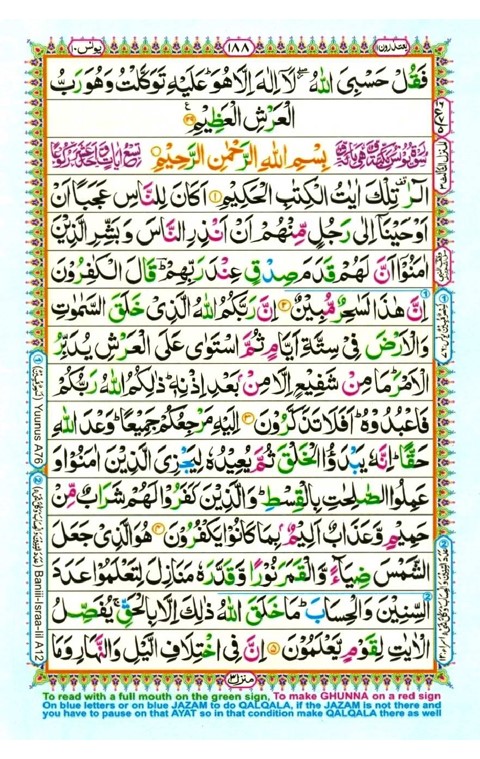 يعتذرون ۱۱
۱۸۸
يونس ۱۰
فَقُلْ حَسْبِيَ اللّٰهُ ۖ لَاۤ اِلٰهَ اِلَّا هُوَ ؕ عَلَيْهِ تَوَكَّلْتُ وَهُوَ رَبُّ
الْعَرْشِ الْعَظِيْمِ ﴿۱۲۹﴾
بِسْمِ اللّٰهِ الرَّحْمٰنِ الرَّحِيْمِ
الٓرٰ ۫ تِلْكَ اٰيٰتُ الْكِتٰبِ الْحَكِيْمِ ﴿۱﴾ اَكَانَ لِلنَّاسِ عَجَبًا اَنْ
اَوْحَيْنَاۤ اِلٰى رَجُلٍ مِّنْهُمْ اَنْ اَنْذِرِ النَّاسَ وَ بَشِّرِ الَّذِيْنَ
اٰمَنُوْۤا اَنَّ لَهُمْ قَدَمَ صِدْقٍ عِنْدَ رَبِّهِمْ ؔؕ قَالَ الْكٰفِرُوْنَ
اِنَّ هٰذَا لَسٰحِرٌ مُّبِيْنٌ ﴿۲﴾ اِنَّ رَبَّكُمُ اللّٰهُ الَّذِيْ خَلَقَ السَّمٰوٰتِ
وَالْاَرْضَ فِيْ سِتَّةِ اَيَّامٍ ثُمَّ اسْتَوٰى عَلَى الْعَرْشِ يُدَبِّرُ
الْاَمْرَ ؕ مَا مِنْ شَفِيْعٍ اِلَّا مِنْۢ بَعْدِ اِذْنِهٖ ؕ ذٰلِكُمُ اللّٰهُ رَبُّكُمْ
فَاعْبُدُوْهُ ؕ اَفَلَا تَذَكَّرُوْنَ ﴿۳﴾ اِلَيْهِ مَرْجِعُكُمْ جَمِيْعًا ؕ وَعْدَ اللّٰهِ
حَقًّا ؕ اِنَّهٗ يَبْدَؤُا الْخَلْقَ ثُمَّ يُعِيْدُهٗ لِيَجْزِيَ الَّذِيْنَ اٰمَنُوْا وَ
عَمِلُوا الصّٰلِحٰتِ بِالْقِسْطِ ؕ وَالَّذِيْنَ كَفَرُوْا لَهُمْ شَرَابٌ مِّنْ
حَمِيْمٍ وَّعَذَابٌ اَلِيْمٌۢ بِمَا كَانُوْا يَكْفُرُوْنَ ﴿۴﴾ هُوَ الَّذِيْ جَعَلَ
الشَّمْسَ ضِيَآءً وَّالْقَمَرَ نُوْرًا وَّقَدَّرَهٗ مَنَازِلَ لِتَعْلَمُوْا عَدَدَ
السِّنِيْنَ وَالْحِسَابَ ؕ مَا خَلَقَ اللّٰهُ ذٰلِكَ اِلَّا بِالْحَقِّ ۚ يُفَصِّلُ
الْاٰيٰتِ لِقَوْمٍ يَّعْلَمُوْنَ ﴿۵﴾ اِنَّ فِي اخْتِلَافِ الَّيْلِ وَالنَّهَارِ وَمَا
منزل ۳
Yuunus A76
Baniii-Israa-iil A12
To read with a full mouth on the green sign, To make GHUNNA on a red sign
On blue letters or on blue JAZAM to do QALQALA, if the JAZAM is not there and
you have to pause on that AYAT so in that condition make QALQALA there as well